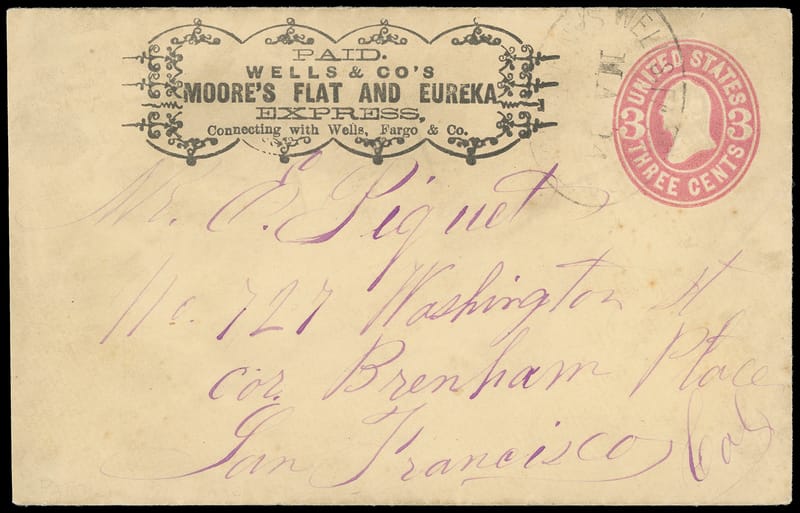 PAID.
WELLS & CO'S
MOORE'S FLAT AND EUREKA
EXPRESS,
Connecting with Wells, Fargo & Co.
WELL
UNITED STATES
3 3
THREE CENTS
Mr. E. Piquet
No. 727 Washington St
cor. Brenham Place
San Francisco Cal